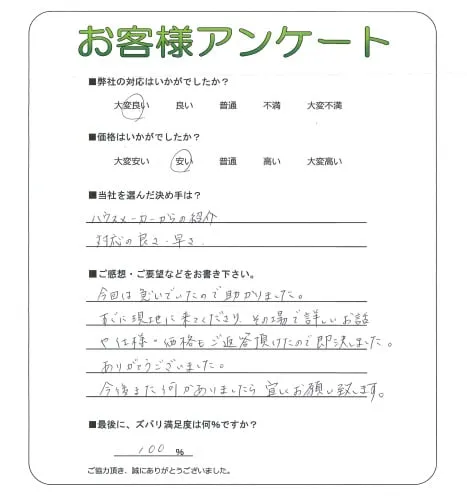 お客様アンケート
■弊社の対応はいかがでしたか？
大変良い 良い 普通 不満 大変不満
■価格はいかがでしたか？
大変安い 安い 普通 高い 大変高い
■当社を選んだ決め手は？
ハウスメーカーからの紹介
対応の良さ・早さ
■ご感想・ご要望などをお書き下さい。
今回は急いでいたので助かりました。
すぐに現地に来てくださり、その場で詳しいお話
や仕様・価格もご返答頂けたので即決しました。
ありがとうございました。
今後また何かありましたら宜しくお願い致します。
■最後に、ズバリ満足度は何%ですか？
100 %
ご協力頂き、誠にありがとうございました。